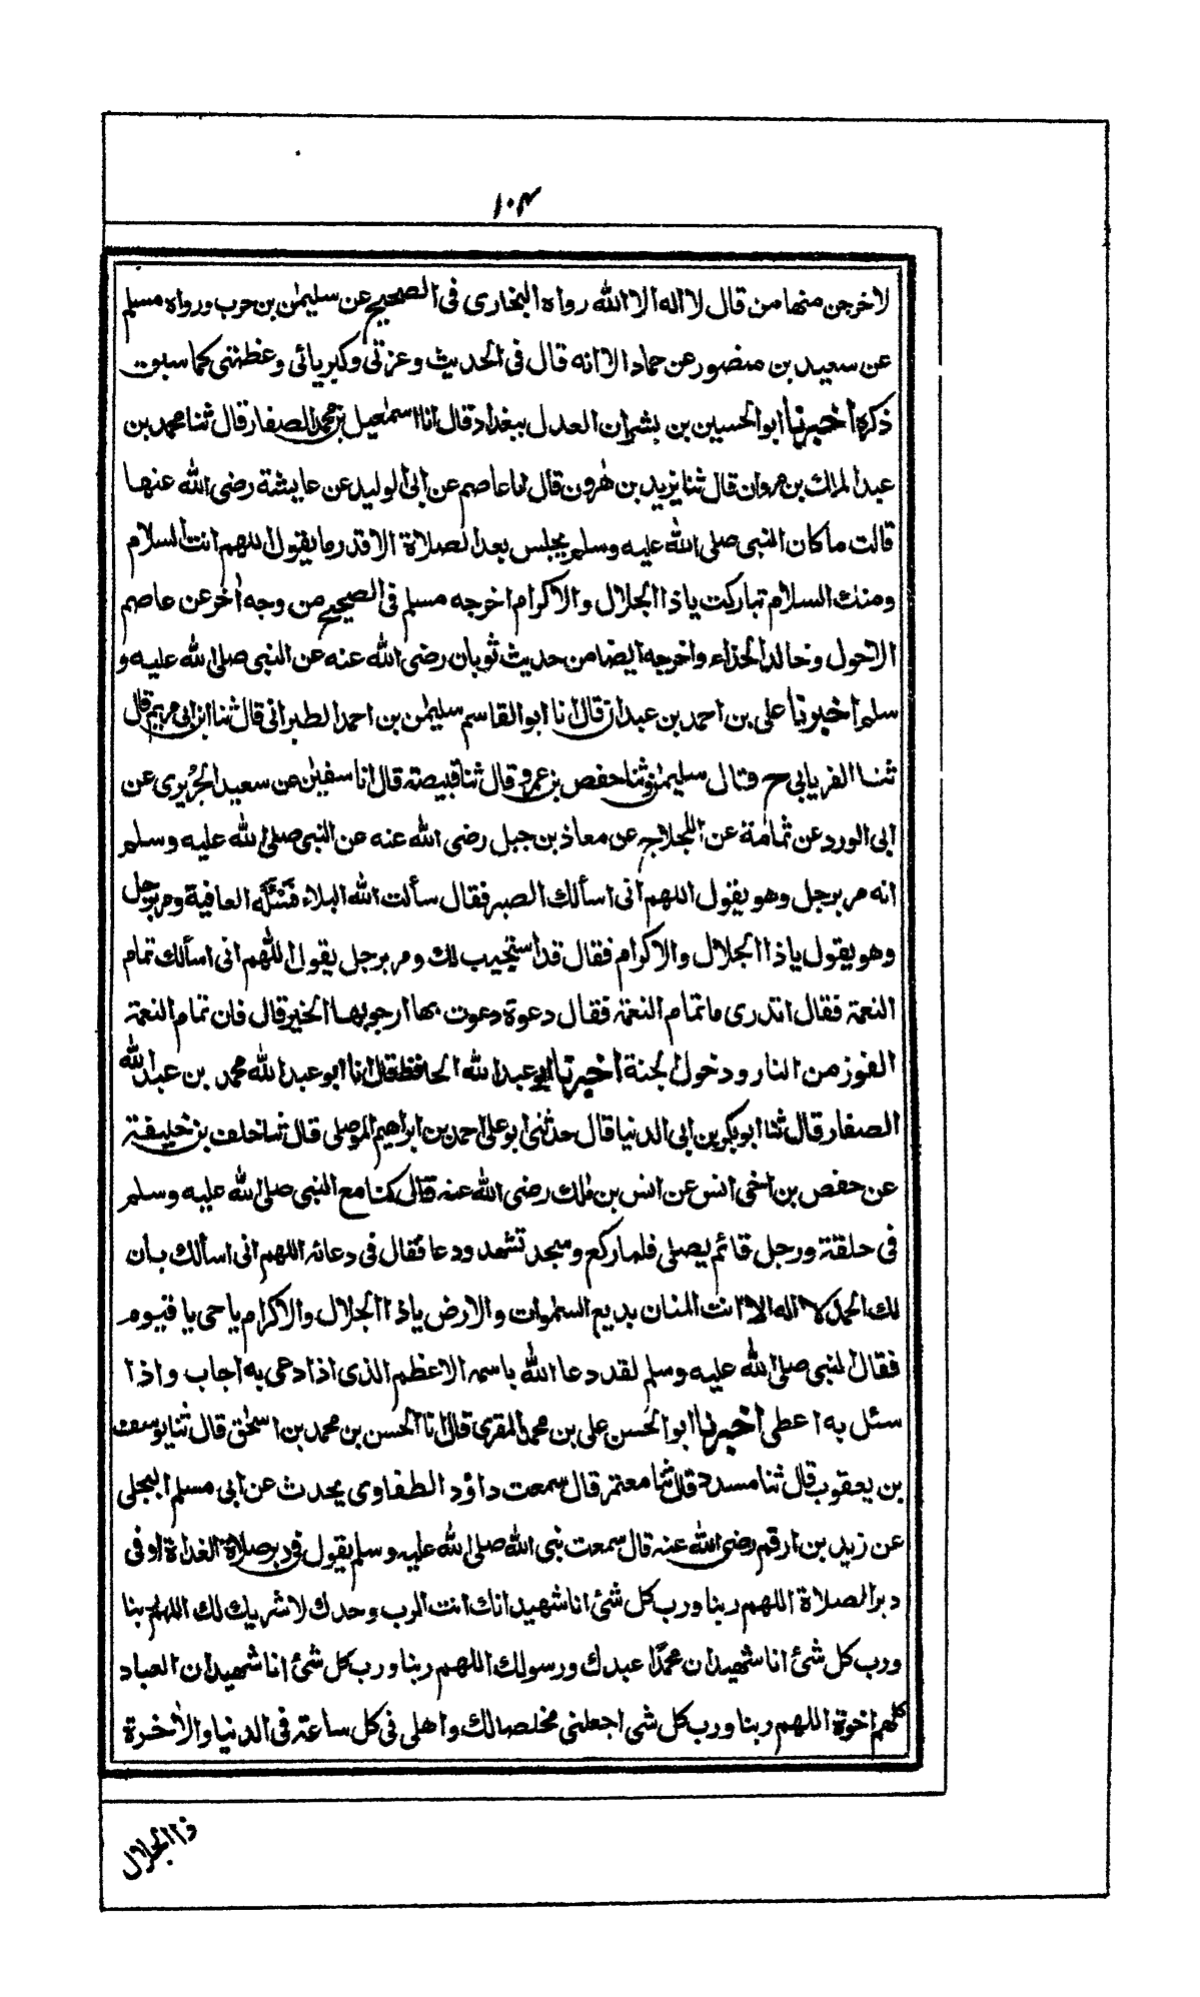 ١٠٤
لاخرجن منها من قال لا اله الا الله رواه البخارى فى الصحيح عن سليمٰن بن حرب ورواه مسلم
عن سعيد بن منصور عن حماد الا انه قال فى الحديث وعزتى وكبريائى وعظمتى كما سبق
ذكره اخبرنا ابو الحسين بن بشران العدل ببغداد قال انا اسمٰعيل بن محمد الصفار قال ثنا محمد بن
عبد الملك بن مروان قال ثنا يزيد بن هٰرون قال انا عاصم عن ابى الوليد عن عايشة رضى الله عنها
قالت ما كان النبى صلى الله عليه وسلم يجلس بعد الصلاة الا قدر ما يقول اللهم انت السلام
ومنك السلام تباركت ياذا الجلال والاكرام اخرجه مسلم فى الصحيح من وجه اٰخر عن عاصم
الاحول وخالد الحذاء واخرجه ايضا من حديث ثوبان رضى الله عنه عن النبى صلى الله عليه و
سلم اخبرنا على بن احمد بن عبدان قال انا ابو القاسم سليمٰن بن احمد الطبرانى قال ثنا ابن ابى مريم قال
ثنا الفريابى ح وقال سليمٰن وثنا حفص بن عمرو قال ثنا قبيصة قال انا سفيٰن عن سعيد الجُريرى عن
ابى الورد عن ثمامة عن اللجلاج عن معاذ بن جبل رضى الله عنه عن النبى صلى الله عليه وسلم
انه مر برجل وهو يقول اللهم انى اسألك الصبر فقال سألت الله البلاء فَسَئَلَه العافية ومر برجل
وهو يقول ياذا الجلال والاكرام فقال قد استجيب لك ومر برجل يقول اللّٰهم انى اسألك تمام
النعمة فقال اتدرى ما تمام النعمة فقال دعوة دعوت بها ارجو بها الخير قال فان تمام النعمة
الفوز من النار ودخول الجنة اخبرنا ابو عبد الله الحافظ قال انا ابو عبد الله محمد بن عبد الله
الصفار قال ثنا ابو بكر بن ابى الدنيا قال حدثنى ابو على احمد بن ابراهيم الموصلى قال ثنا خلف بن خليفة
عن حفص بن اخى انس عن انس بن مٰلك رضى الله عنه قال كنا مع النبى صلى الله عليه وسلم
فى حلقة ورجل قائم يصلى فلما ركع وسجد تشهد ودعا فقال فى دعائه اللهم انى اسألك بأن
لك الحمد لا اله الا انت المنان بديع السمٰوات والارض ياذا الجلال والاكرام يا حى يا قيوم
فقال النبى صلى الله عليه وسلم لقد دعا الله باسمه الاعظم الذى اذا دعى به اجاب واذا
سئل به اعطى اخبرنا ابو الحسن على بن محمد المقرى قال انا الحسن بن محمد بن اسحٰق قال ثنا يوسف
بن يعقوب قال ثنا مسدد قال ثنا معتمر قال سمعت داؤد الطفاوى يحدث عن ابى مسلم البجلى
عن زيد بن ارقم رضى الله عنه قال سمعت نبى الله صلى الله عليه وسلم يقول فى دبر صلاة الغداة او فى
دبر الصلاة اللهم ربنا ورب كل شئ انا شهيد انك انت الرب وحدك لا شريك لك اللهم ربنا
ورب كل شئ انا شهيد ان محمدًا عبدك ورسولك اللهم ربنا ورب كل شئ انا شهيد ان العباد
كلهم اخوة اللهم ربنا ورب كل شى اجعلنى مخلصا لك واهلى فى كل ساعة فى الدنيا والاٰخرة
ذا الجلال